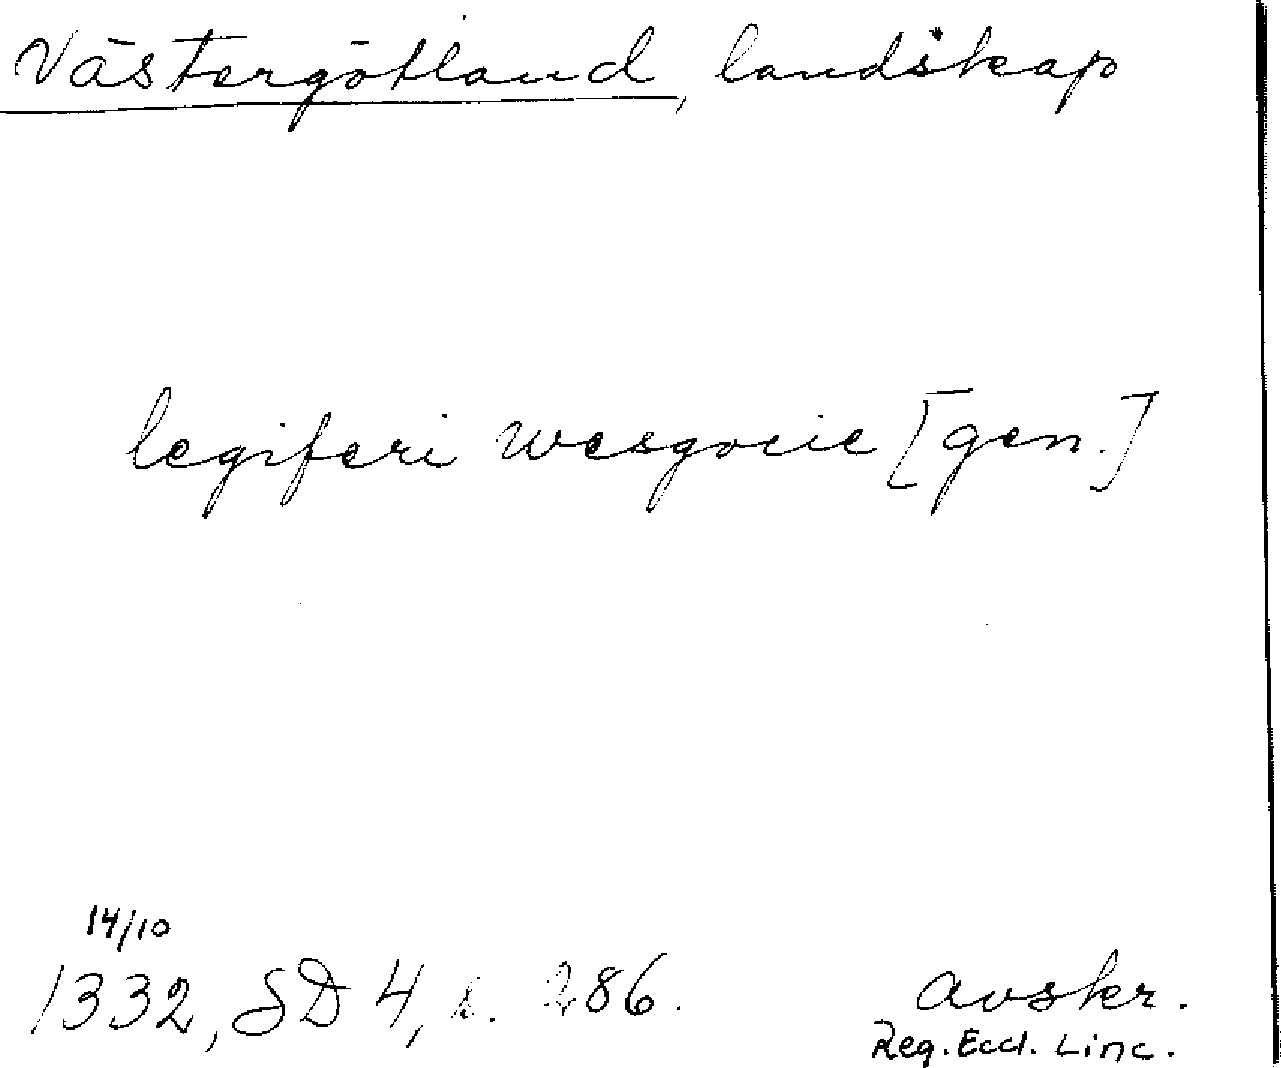 Västergötland, landskap
legiferi wesgocie [gen.]
14/10
1332, SD 4, s. 286.
avskr.
Reg. Eccl. Linc.